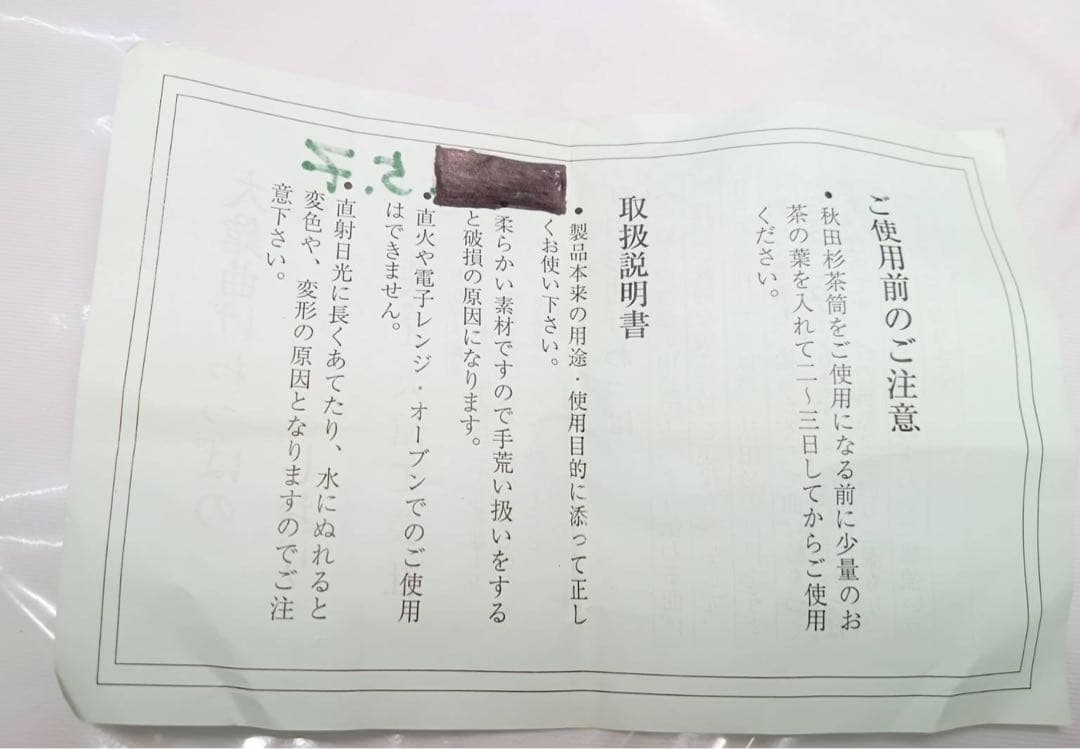 ご使用前のご注意
・秋田杉茶筒をご使用になる前に少量のお
茶の葉を入れて二～三日してからご使用
ください。
取扱説明書
・製品本来の用途・使用目的に添って正し
くお使い下さい。
・柔らかい素材ですので手荒い扱いをする
と破損の原因になります。
・直火や電子レンジ・オーブンでのご使用
はできません。
・直射日光に長くあてたり、水にぬれると
変色や、変形の原因となりますのでご注
意下さい。